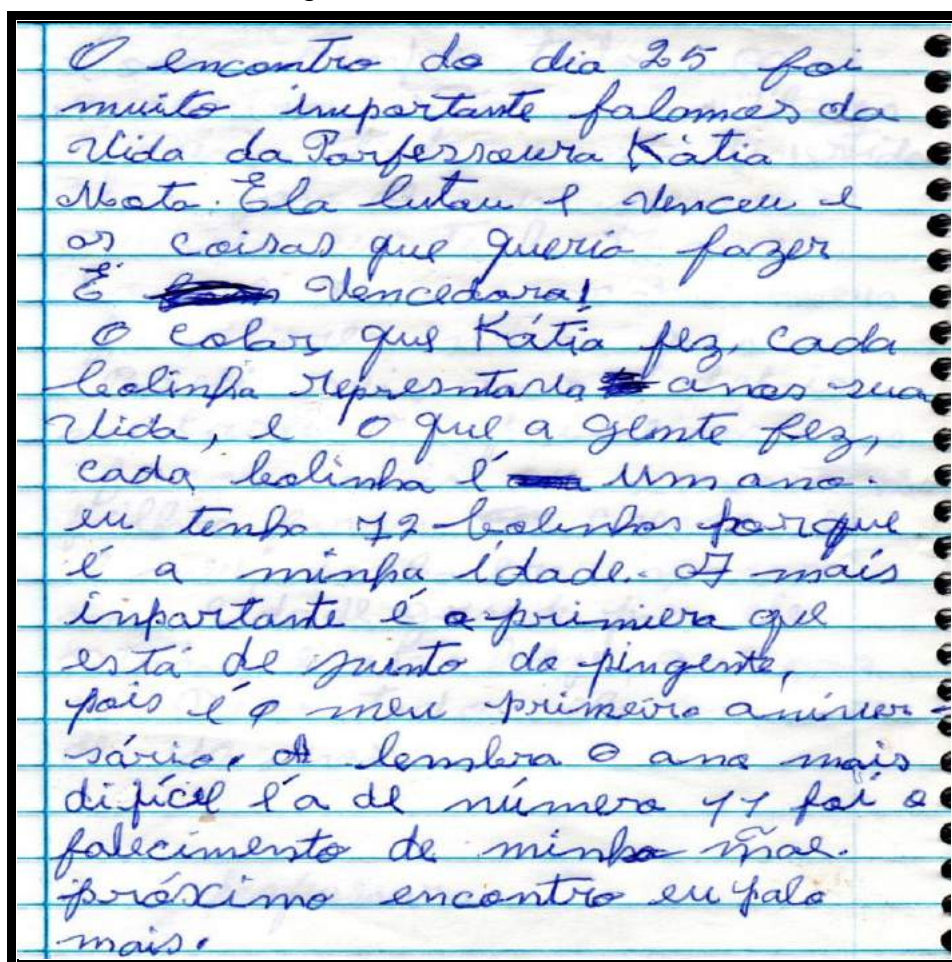 O encontro do dia 25 foi
muito importante falamos da
Vida da Porfessoura Kátia
Mota. Ela lutou e Venceu e
as coisas que queria fazer
É Vencedora!
O colar que Kátia fez, cada
bolinha represntava anos sua
Vida, e o que a gente fez,
cada bolinha é Um ano.
eu tenho 72 bolinhas porque
é a minha idade. A mais
inportante é a primiera que
está de junto do pingente,
pois é o meu primeiro aniver-
sário. A lembra o ano mais
difícil é a de número 11 foi o
falecimento de minha mãe.
próximo encontro eu falo
mais.